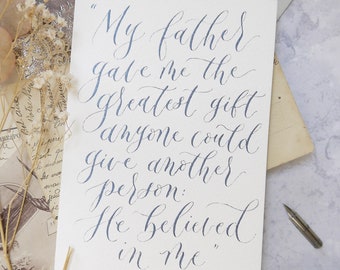 "My father
gave me the
greatest gift
anyone could
give another
person:
He believed
in me"